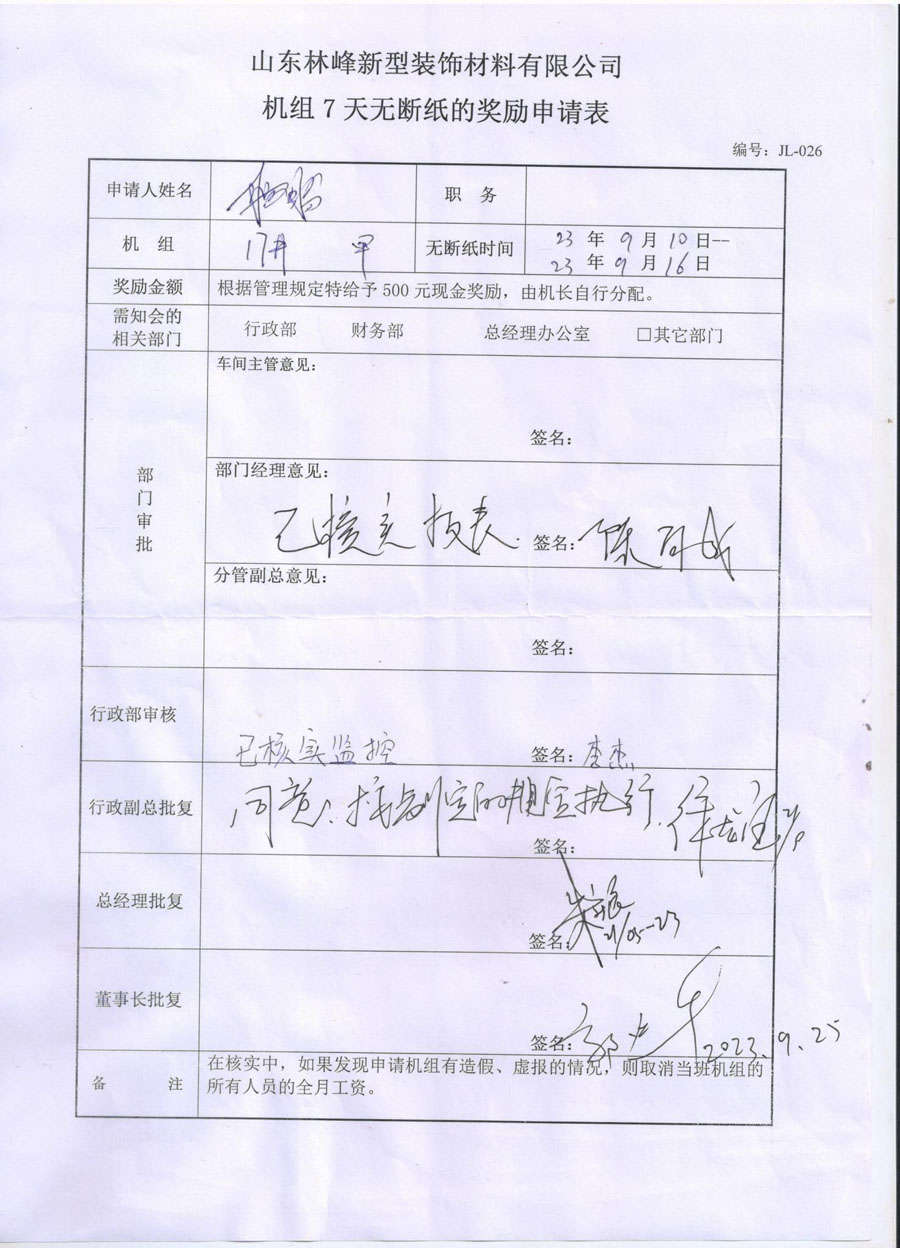 山东林峰新型装饰材料有限公司
机组7天无断纸的奖励申请表
编号：JL-026
申请人姓名 职 务
机 组 17# 甲 无断纸时间 23 年 9 月 10 日--
23 年 9 月 16 日
奖励金额 根据管理规定特给予 500 元现金奖励，由机长自行分配。
需知会的
相关部门 行政部 财务部 总经理办公室 □其它部门
部门审批
车间主管意见：
签名：
部门经理意见：
已核实报表 签名：
分管副总意见：
签名：
行政部审核 已核实监控 签名：李杰
行政副总批复 同意 执行
签名：
总经理批复
签名：
董事长批复
签名： 2023.9.25
备 注 在核实中，如果发现申请机组有造假、虚报的情况，则取消当班机组的
所有人员的全月工资。